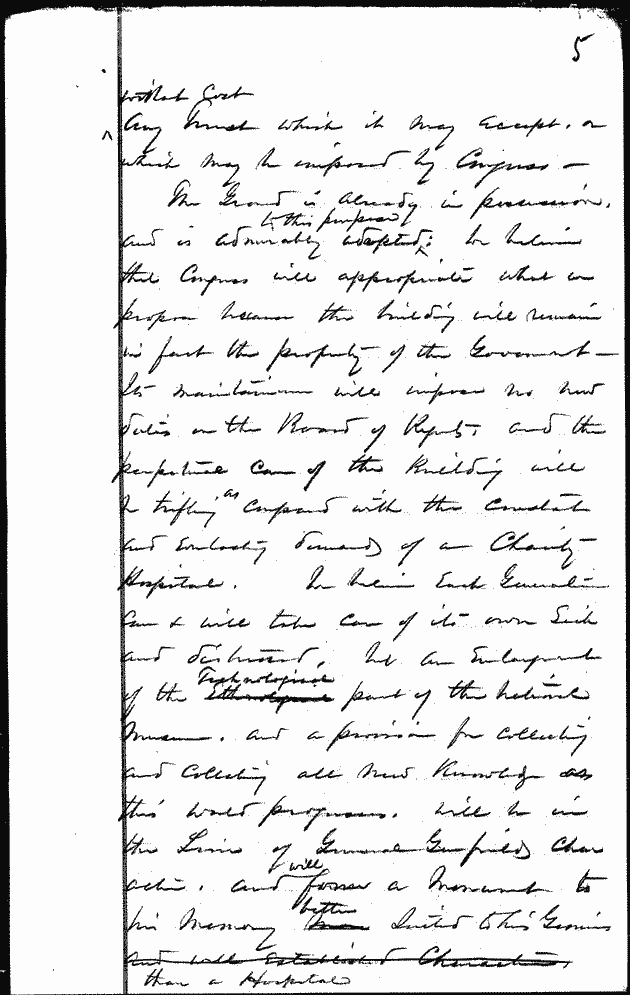 5
without Cost
Any trust which it may accept. or
which may be imposed by Congress —
The Ground is already in possession,
to this purpose
and is admirably adapted; We believe
that Congress will appropriate what we
propose because the building will remain
in fact the property of the Government —
Its maintainance will impose no new
duties on the Board of Regents, and the
perpetual care of the Building will
as
be trifling compared with the constant
and Everlasting demands of a Charity
Hospital. We believe Each Generation
can & will take care of its own Sick
and distressed, but an Enlargement
Technological
of the Ethnological part of the National
Museum, and a provision for collecting
and collecting all new Knowledge as
this world progresses, will be in
the Line of General Garfields Char
will
acter, and a Monument to
better
his Memory suited to his Genius
and well Established Character,
than a Hospital